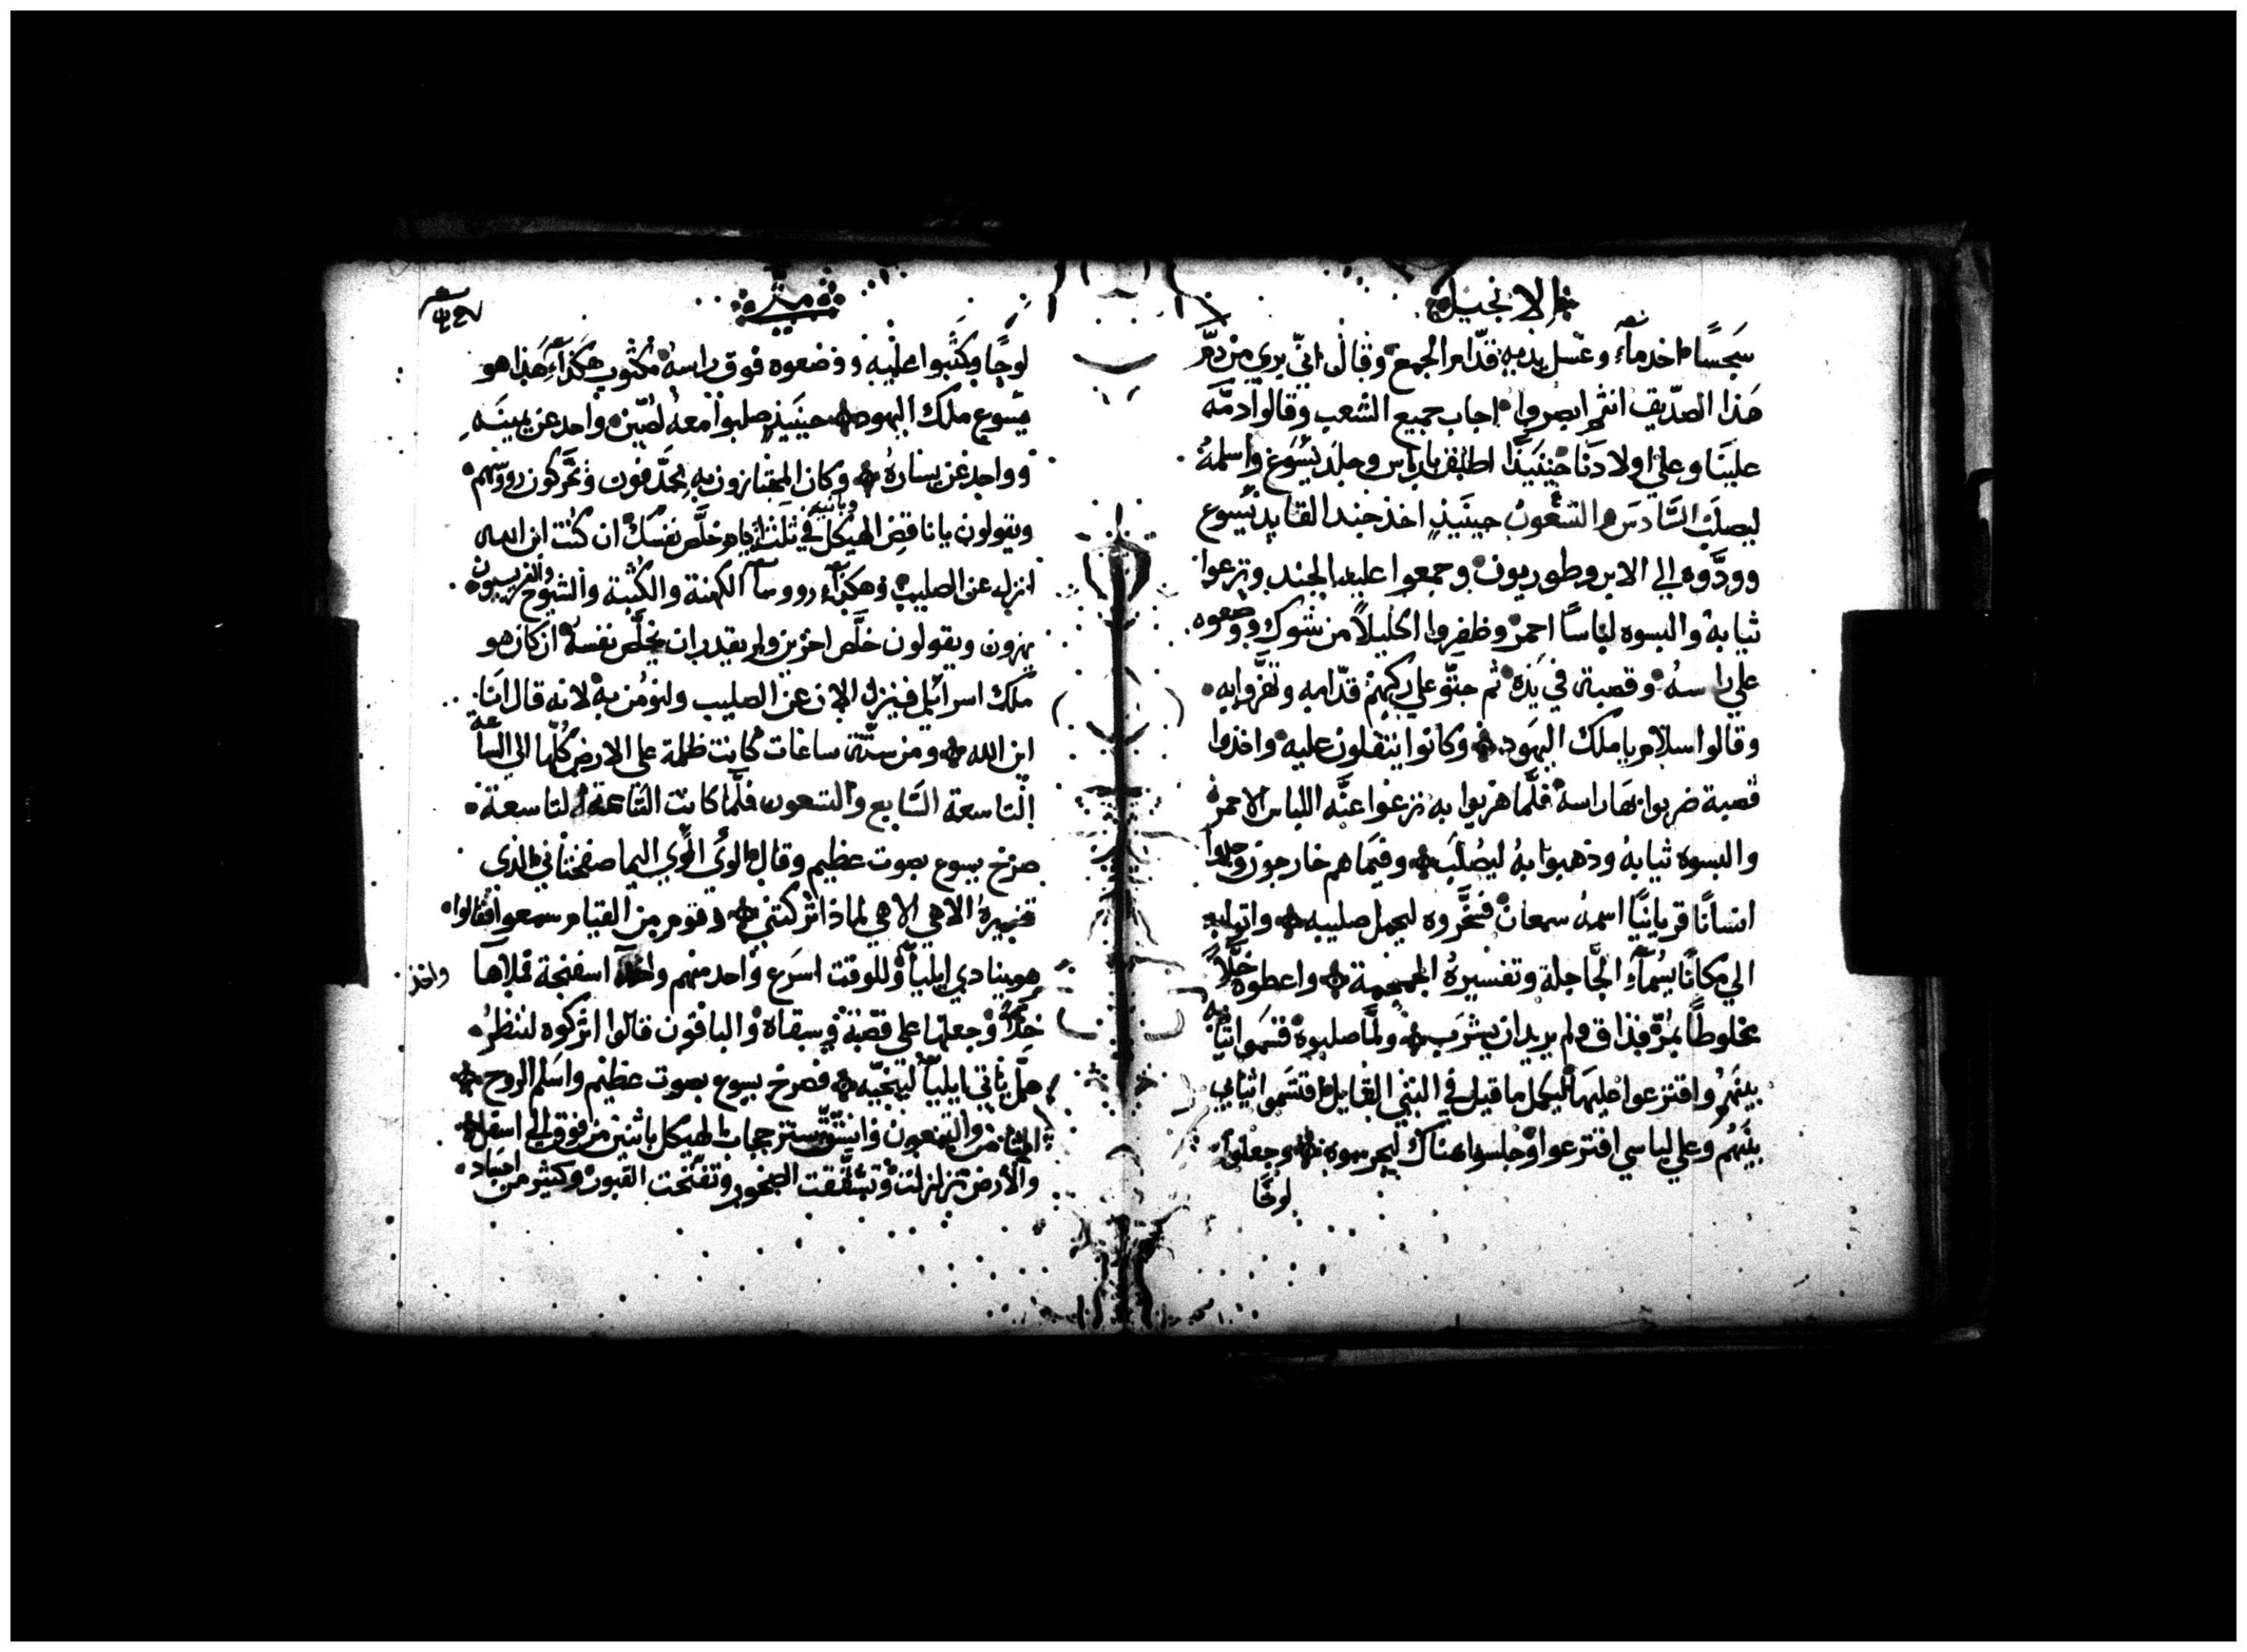 الانجيل
سَجسًا اخد مآء وغسل يديه قدّام الجمع وقال انّي بري من دم
هَذا الصدّيق انتم ابصروا اجاب جميع الشعب وقالوا دمَه
علينا وعلي اولادنا حينَيذًا اطلق بارباس وجلد يَسُوع واسلمهُ
ليصلب السَّادسَ والتسعُون حينَيذٍ اخذ جند القايد يَسُوع
وودَّوه الي الابروطوريون وجمعوا عليه الجند ونزعوا
ثيابهُ والبسوه لباسًا احمر وظفروا اكليلاً من شوك ووضعوه
علي راسهُ وقصبة في يَده ثم جثوّ علي ركبهم قدّامه وتهزّوا به
وقالوا سلام يا ملك اليهَود وكانوا يتفلون عليه واخذوا
قصبة ضربوا بهَا راسهُ فلّما هزيوا به نزعوا عنَّه اللباس الاحمر
والبسوه ثيابهُ وذهبوا به ليصُلَب وفيمَا هم خارجون وجدوا
انسَانًا قريانيًا اسمهُ سمعان فسخّروه ليحمل صليبه واتوا به
الي مكانًا يسُمآء الجَّاجلة وتفسيرهُ الجمجمة واعطوه خلًّا
مخلوطًا بمُرّ فذاق ولم يريد ان يشرَب ولَّما صلبوه قسَموا ثيابه
بينَهُم واقترعوا عليهَا ليكمل ما قيل في النبي القايل اقتسَموا ثيابي
بينَهُم وعلي لباسي اقترعوا وجلسوا هناك ليحرسوه وجعلوا
لوحًا
متي
لوحًا وكتَبوا عليه ووضعوه فوق راسهُ مكتوب هكذآء هَذا هو
يَسُوع ملك اليهود حينَيذٍ صلبوا معهُ لصّين واحد عن يمينَه
وواحد عن يسَاره وكان المجتازون به يجدّفون ويحَّركون رووسهم
ويقولون يا ناقض الهيكل وبانيه في ثلثة ايام خلّص نفسَك ان كنُت ابن الله
انزل عن الصليب وهكذآء رووسآء الكهنة والكُتبة والشيُوخ والفريسيون
يهزون ويقولون خلَّص اخرين ولم يقدر ان يخلّص نفسهُ ان كان هو
ملك اسرائيل فينزل الان عن الصليب ولنوُمن به لانه قال انَا
ابن الله ومن ستّة ساعات كانت ظلمة علي الارض كُلّها الي الساعة
التاسعة السَّابع والتسعون فلَّما كانت السَّاعة التاسعة
صرخ يسوع بصوت عظيم وقال الوُي الوُي اليما صفختاني الذي
تفسيرهُ الاهي الاهي لماذا اتركتني وقوم من القيام سمعوا فقالوا
هو ينادي ايليآ وللوقت اسرَع وَاحد منهم واخذ اسفنجة فملاهآ
واخذ
خلًّا وجعلهَا علي قصَبة وسقاه والباقون قالوا اتركوه لننظرُ
هل يَاتي ايليآ لينجيّه فصرخ يسوع بصوت عظيم واسلم الروح
الثامن والتسعون وانشَقّ ستر حجاب الهيكل باثنين من فوق الي اسفل
والارض تزلزلت وتشقّقت الصخور وتفتّحت القبور وكثير من اجسَاد